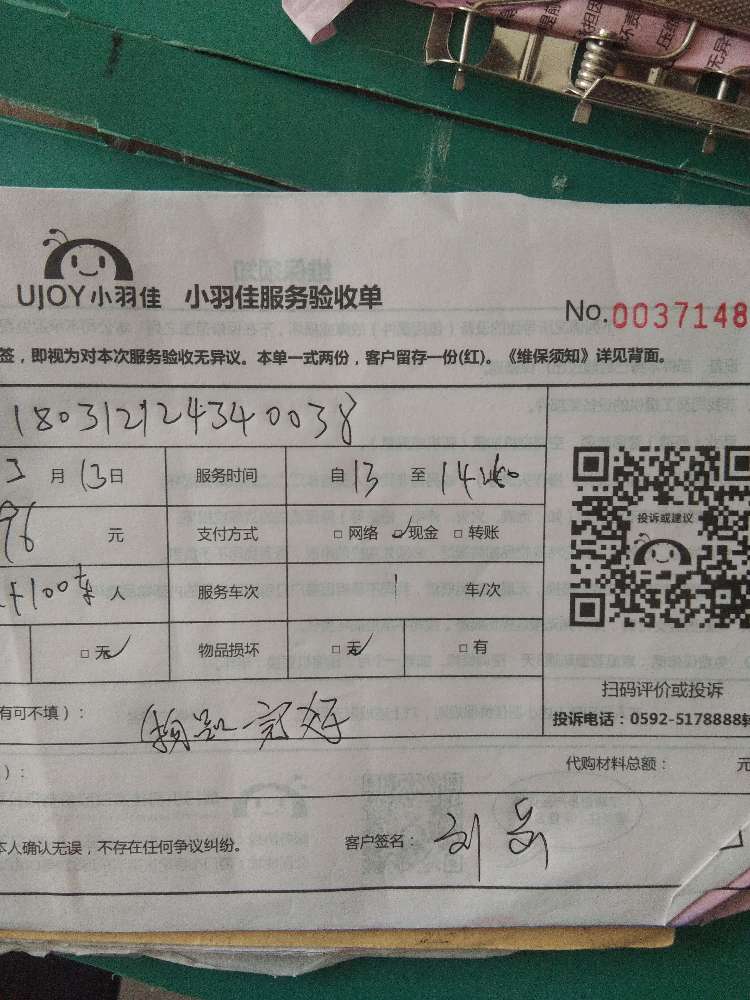 UJOY小羽佳 小羽佳服务验收单
No.0037148
签，即视为对本次服务验收无异议。本单一式两份，客户留存一份(红)。《维保须知》详见背面。
180312124340038
3月13日 服务时间 自13至14:00
96 元 支付方式 □网络 □现金 □转账
投诉或建议
+100车 人 服务车次 1 车/次
□无 物品损坏 □无 □有
扫码评价或投诉
有可不填）： 物品完好
投诉电话：0592-5178888转
）： 代购材料总额： 元
本人确认无误，不存在任何争议纠纷。 客户签名：